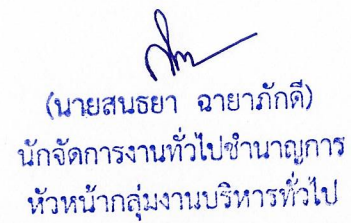 (นายสนธยา ฉายาภักดี)
นักจัดการงานทั่วไปชำนาญการ
หัวหน้ากลุ่มงานบริหารทั่วไป